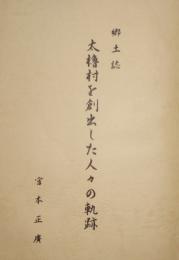 郷土誌
太櫓村を創出した人々の軌跡
宮本正廣